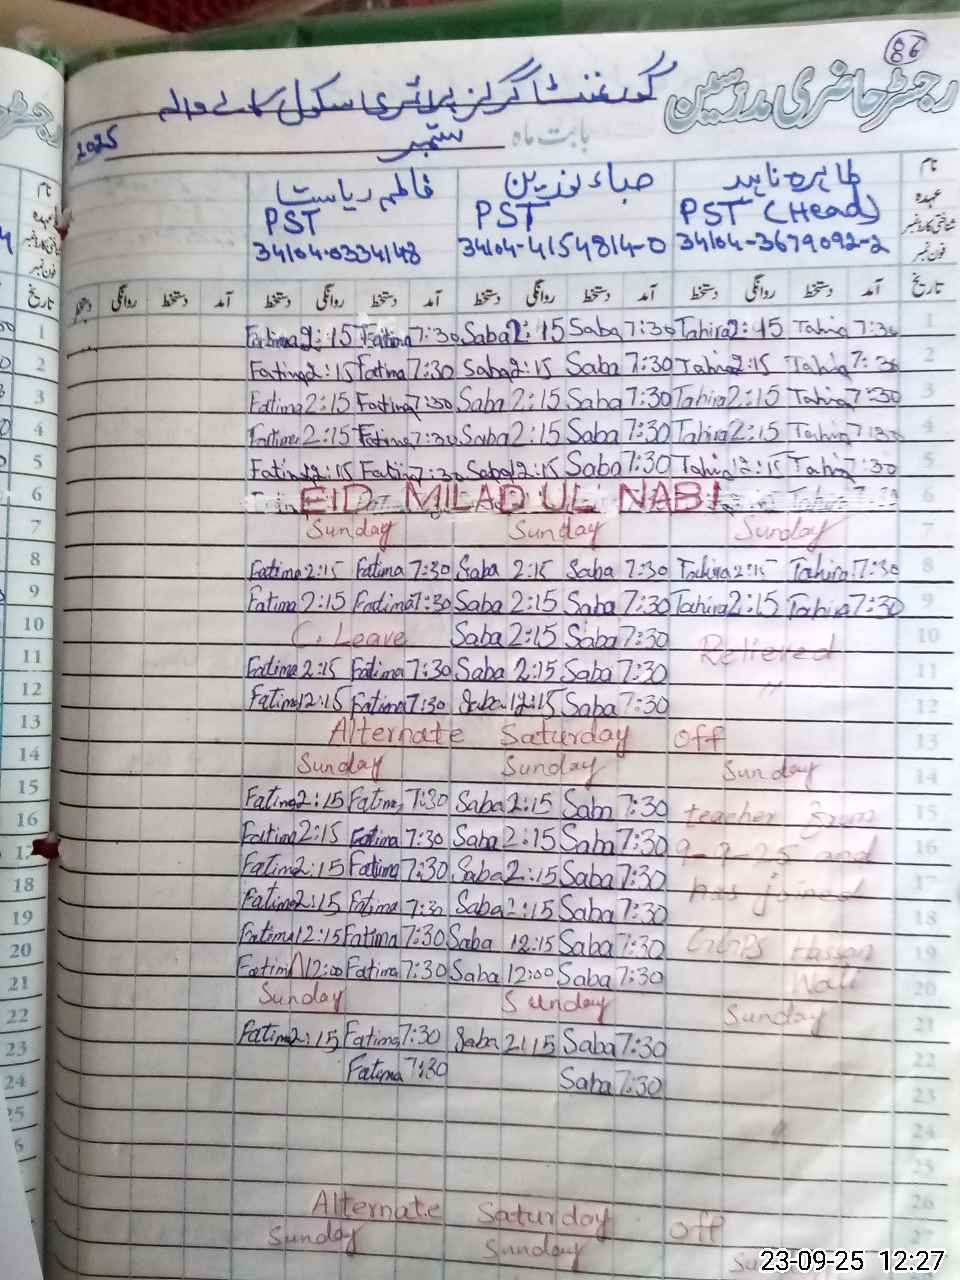 86
رجسٹر حاضری مدرسین
گورنمنٹ گرلز پرائمری سکول
بابت ماہ ستمبر 2025
نام طاہرہ ناہید صباء نورین فاطمہ ریاست
عہدہ PST (Head) PST PST
شناختی کارڈ نمبر 34104-3679092-2 34104-4154814-0 34104-0334148
فون نمبر
تاریخ آمد دستخط روانگی دستخط آمد دستخط روانگی دستخط آمد دستخط روانگی دستخط آمد دستخط روانگی دستخط
1 Fatima 2:15 Fatima 7:30 Saba 2:15 Saba 7:30 Tahira 2:15 Tahira 7:30 1
2 Fatima 2:15 Fatima 7:30 Saba 2:15 Saba 7:30 Tahira 2:15 Tahira 7:30 2
3 Fatima 2:15 Fatima 7:30 Saba 2:15 Saba 7:30 Tahira 2:15 Tahira 7:30 3
4 Fatima 2:15 Fatima 7:30 Saba 2:15 Saba 7:30 Tahira 2:15 Tahira 7:30 4
5 Fatima 12:15 Fatima 7:30 Saba 12:15 Saba 7:30 Tahira 12:15 Tahira 7:30 5
6 EID MILAD UL NABI 6
7 Sunday Sunday Sunday 7
8 Fatima 2:15 Fatima 7:30 Saba 2:15 Saba 7:30 Tahira 2:15 Tahira 7:30 8
9 Fatima 2:15 Fatima 7:30 Saba 2:15 Saba 7:30 Tahira 2:15 Tahira 7:30 9
10 C. Leave Saba 2:15 Saba 7:30 Relieved 10
11 Fatima 2:15 Fatima 7:30 Saba 2:15 Saba 7:30 " 11
12 Fatima 12:15 Fatima 7:30 Saba 12:15 Saba 7:30 12
13 Alternate Saturday Off 13
14 Sunday Sunday Sunday 14
15 Fatima 2:15 Fatima 7:30 Saba 2:15 Saba 7:30 teacher from 15
16 Fatima 2:15 Fatima 7:30 Saba 2:15 Saba 7:30 9-9-25 and 16
17 Fatima 2:15 Fatima 7:30 Saba 2:15 Saba 7:30 has joined 17
18 Fatima 2:15 Fatima 7:30 Saba 2:15 Saba 7:30 18
19 Fatima 12:15 Fatima 7:30 Saba 12:15 Saba 7:30 GGPS Hassan 19
20 Fatima 12:00 Fatima 7:30 Saba 12:00 Saba 7:30 Wali 20
21 Sunday Sunday Sunday 21
22 Fatima 2:15 Fatima 7:30 Saba 2:15 Saba 7:30 22
23 Fatima 7:30 Saba 7:30 23
24 24
25 25
26
Alternate Saturday Off 27
Sunday Sunday
23-09-25 12:27